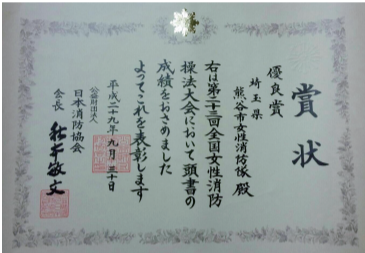 賞状
優良賞
埼玉県
熊谷市女性消防隊 殿
右は第二十三回全国女性消防
操法大会において頭書の
成績をおさめました
よってこれを表彰します
平成二十九年九月三十日
公益財団法人
日本消防協会
会長 秋本敏文